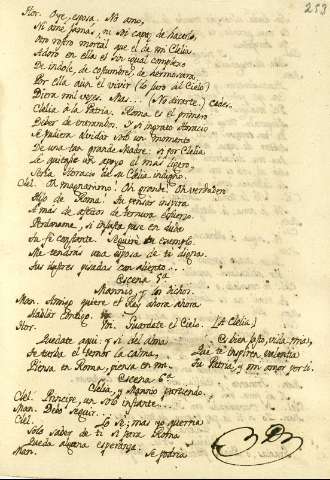 253
Hor. Oye, esposa. No ame,
Ni ame jamas, ni soi capaz de hacerlo,
Otro rostro mortal que el de mi Clelia
Adoro en ella el sin igual complexo
De indole, de costumbres, de hermosura,
Por ella aun el vivir (lo juro al Cielo)
Diera mil veces. Mas... (No disierte.) cedes
Clelia à la Patria. Roma es el primero
Deber de entrambos. I si ingrato Horacio
Se pudiera olvidar solo un momento
De una tan grande Madre; si por Clelia
Le quitase un apoyo el mas ligero,
Seria Horacio de su Clelia indigno.
Clel. Oh magnanimo! Oh grande! Oh verdadero
Hijo de Roma! Tu pensar inspira
A mas de afectos de ternura esfuerzo.
Perdoname, si injusta puse en duda
Tu fe constante. Seguiré tu exemplo.
Me tendras una esposa de ti digna.
Tus ilustres pisadas con aliento...
Escena 5ª
Mannio, y los dichos.
Man. Amigo quiere el Rey ahora ahora
Hablar contigo.
Hor. Voi. Guardete el Cielo. (A Clelia)
Quedate aqui: y si del alma
Te turba el temor la calma,
Piensa en Roma, piensa en mi.
Es bien justo, vida mia,
Que te inspiren valentia
Tu Patria, y mi amor por ti.
Escena 6ª
Clelia, y Mannio partiendo.
Clel. Principe, un solo instante...
Man. Debo seguir...
Clel. Lo sè; mas yo querria
Solo saber de ti si para Roma
Queda alguna esperanza.
Man. Se podria